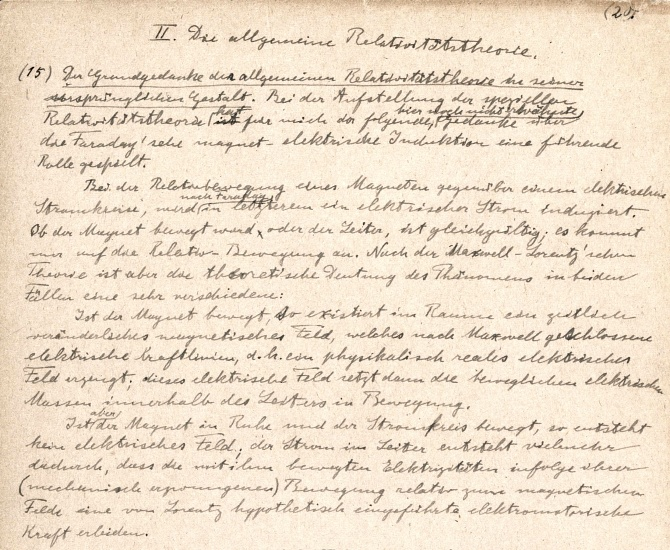 (20)
II. Die allgemeine Relativitätstheorie.
(15) Der Grundgedanke der allgemeinen Relativitätstheorie in seiner
ursprünglichen Gestalt. Bei der Aufstellung der speziellen
Relativitätstheorie hat für mich der folgende, hier noch nicht erwähnte Gedanke über
die Faraday'sche magnet-elektrische Induktion eine führende
Rolle gespielt.
Bei der Relativbewegung eines Magneten gegenüber einem elektrischen
Stromkreise, wird nach Faraday in letzterem ein elektrischer Strom induziert.
Ob der Magnet bewegt wird, oder der Leiter, ist gleichgültig; es kommt
nur auf die Relativ-Bewegung an. Nach der Maxwell-Lorentz'schen
Theorie ist aber die theoretische Deutung des Phänomens in beiden
Fällen eine sehr verschiedene:
Ist der Magnet bewegt, so existiert im Raume ein zeitlich
veränderliches magnetisches Feld, welches nach Maxwell geschlossene
elektrische Kraftlinien, d.h. ein physikalisch reales elektrisches
Feld erzeugt; dieses elektrische Feld setzt dann die beweglichen elektrischen
Massen innerhalb des Leiters in Bewegung.
Ist aber der Magnet in Ruhe und der Stromkreis bewegt, so entsteht
kein elektrisches Feld; der Strom im Leiter entsteht vielmehr
dadurch, dass die mit ihm bewegten Elektrizitäten infolge ihrer
(mechanisch erzwungenen) Bewegung relativ zum magnetischen
Felde eine von Lorentz hypothetisch eingeführte elektromotorische
Kraft erleiden.